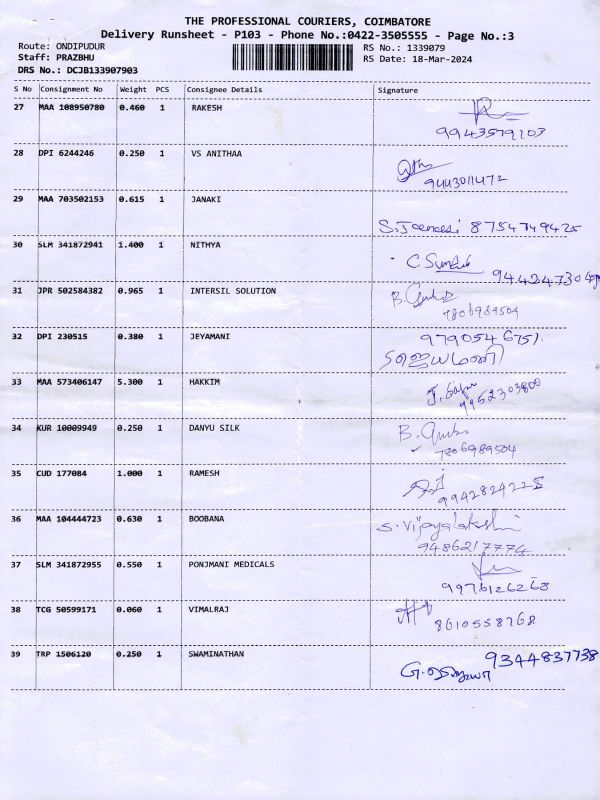 THE PROFESSIONAL COURIERS, COIMBATORE
Delivery Runsheet - P103 - Phone No.:0422-3505555 - Page No.:3
Route: ONDIPUDUR RS No.: 1339079
Staff: PRAZBHU RS Date: 18-Mar-2024
DRS No.: DCJB133907903
S No Consignment No Weight PCS Consignee Details Signature
27 MAA 108950780 0.460 1 RAKESH
9943579103
28 DPI 6244246 0.250 1 VS ANITHAA
9443011472
29 MAA 703502153 0.615 1 JANAKI
8754749425
30 SLM 341872941 1.400 1 NITHYA
31 JPR 502584382 0.965 1 INTERSIL SOLUTION
7806989504
32 DPI 230515 0.380 1 JEYAMANI 9790546751
ஜெயமணி
33 MAA 573406147 5.300 1 HAKKIM
9952303800
34 KUR 10009949 0.250 1 DANYU SILK
7806989504
35 CUD 177084 1.000 1 RAMESH
36 MAA 104444723 0.630 1 BOOBANA S. Vijayalakshmi
9486217774
37 SLM 341872955 0.550 1 PONJMANI MEDICALS
9976126263
38 TCG 50599171 0.060 1 VIMALRAJ
8610558768
39 TRP 1506120 0.250 1 SWAMINATHAN 9344837738